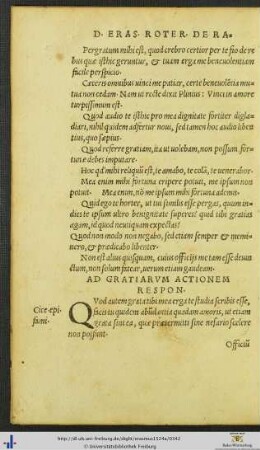 D. ERAS. ROTER. DE RA.
Pergratum mihi est, quod crebro certior per te fio de re
bus quæ isthic geruntur, & tuam erga me beneuolentiam
facile perspicio.
Cæteris omnibus uinci me patiar, certe beneuolẽtia mu
tua non cedam. Nam ut recte dixit Plinius: Vinci in amore
turpissimum est.
Quod audio te isthic pro mea dignitate fortiter digla-
diari, nihil quidem adfertur noui, sed tamen hoc audio liben
tius, quo sæpius.
Quod referre gratiam, ita ut uolebam, non possum, for-
tunæ debes imputare.
Hoc qd mihi reliquũ est, te amabo, te colã, te uenerabor.
Mea enim mihi fortuna eripere potuit, me ipsum non
potuit. Mea enim, nõ me ipsum mihi fortuna ademit.
Quid ego te horter, ut tui similis esse pergas, quum in
dies te ipsum ultro benignitate superes? quid tibi gratias
agam, id quod ne uisquam expectas?
Quod non modo non negabo, sed etiam semper & memi-
nero, & prædicabo libenter.
Non est alius quisquam, cuius officijs me tam esse deuin
ctum, non solum fatear, uerum etiam gaudeam.
AD GRATIARVM ACTIONEM
RESPON.
Cice. epi
stani.
QVod autem gratas tibi mea erga te studia scribis esse,
facis tu quidem abũdantia quadam amoris, ut etiam
grata sint ea, quæ prætermitti sine nefario scelere
non possunt.
Officiũ
http://dl.ub.uni-freiburg.de/diglit/erasmus1524a/0342
© Universitätsbibliothek Freiburg
Baden-Württemberg